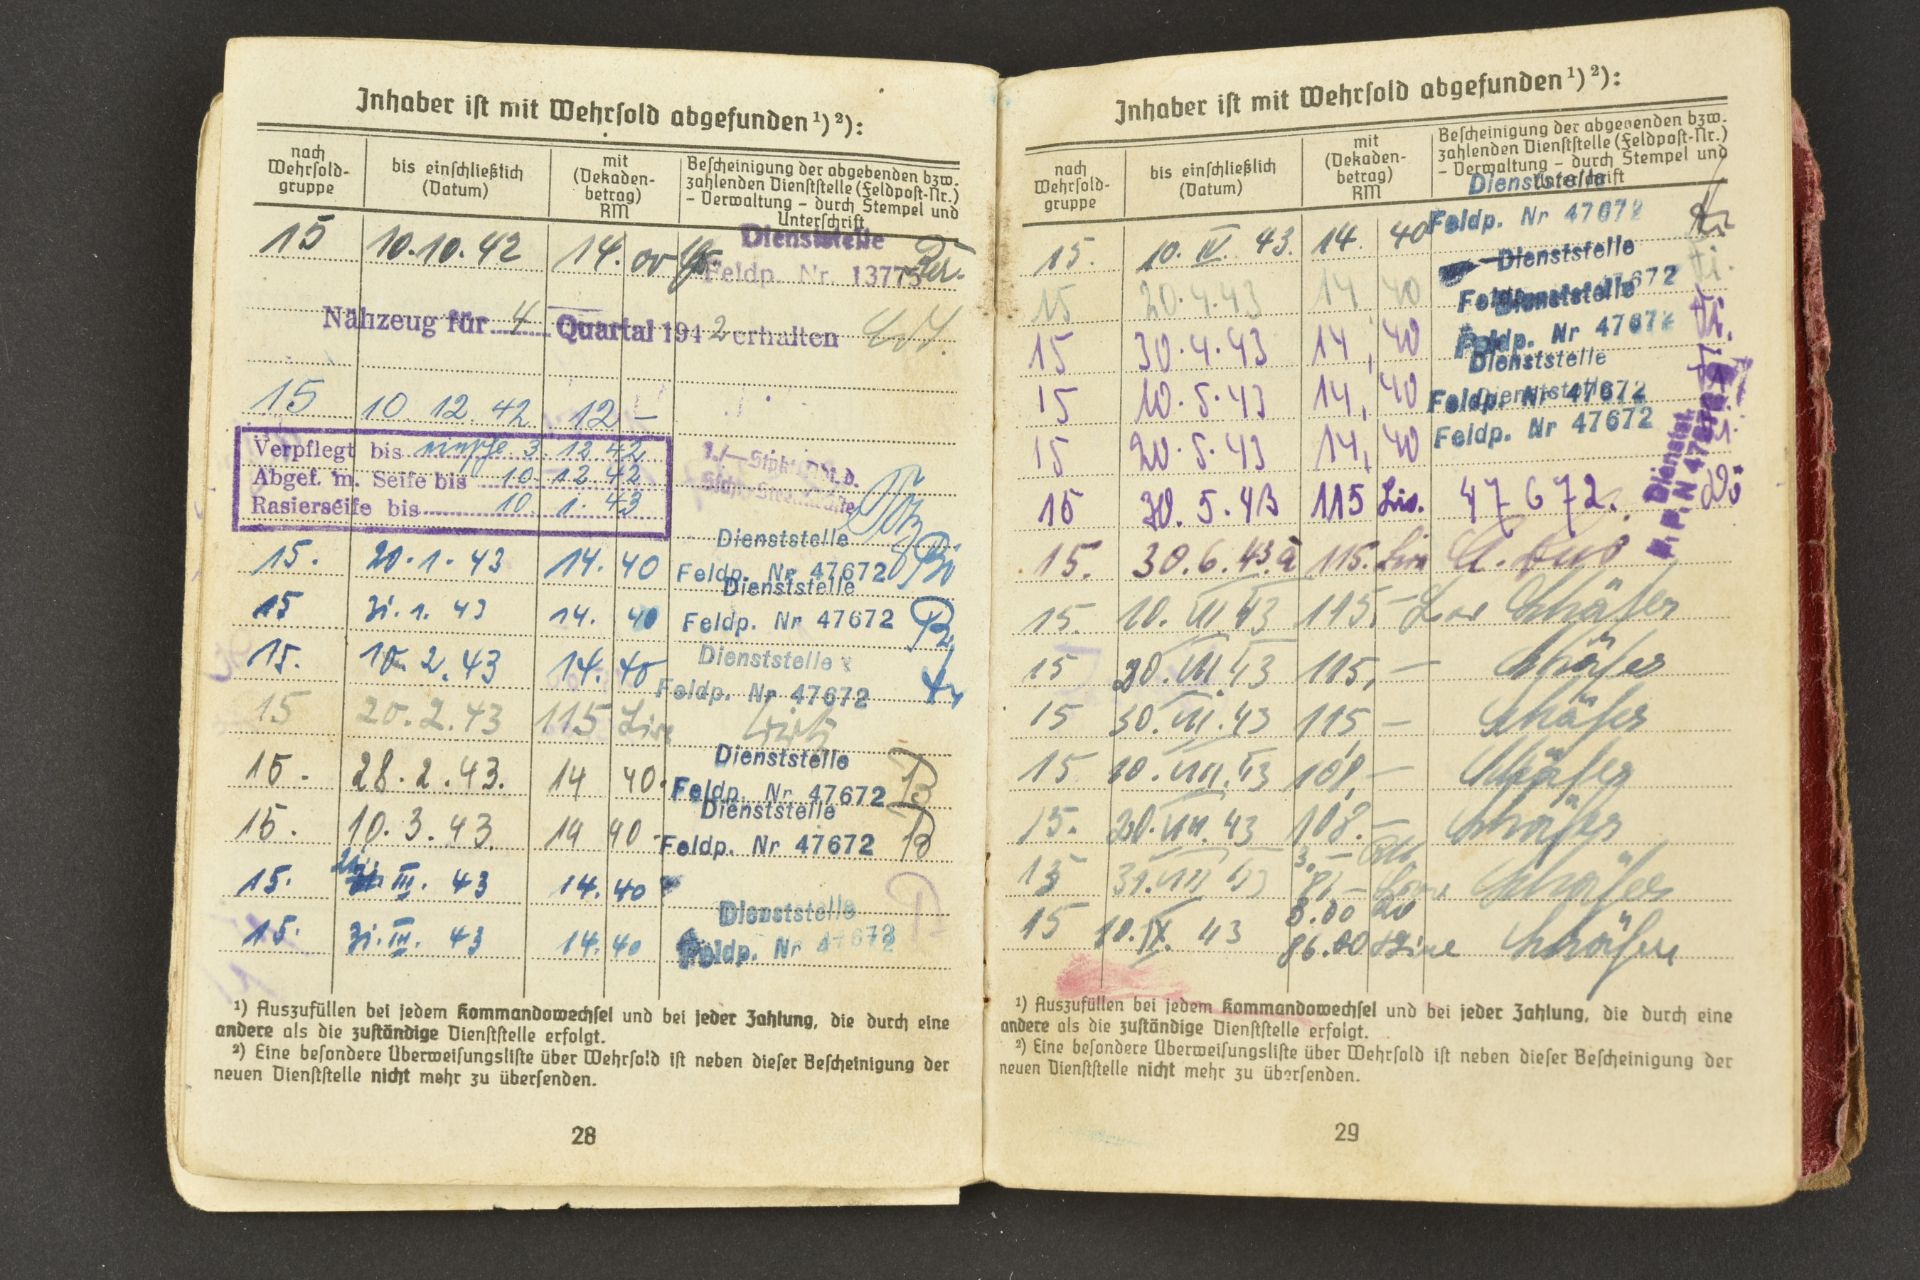 Inhaber ist mit Wehrsold abgefunden¹) ²):
nach Wehrsold-gruppe
bis einschließlich (Datum)
mit (Dekaden-betrag) RM
Bescheinigung der abgebenden bzw. zahlenden Dienststelle (Feldpost-Nr.) – Verwaltung – durch Stempel und Unterschrift
15 10.10.42 14.00 Dienststelle
Feldp. Nr. 13775
Nähzeug für 4 Quartal 1942 erhalten
15 10.12.42 12 –
Verpflegt bis 3.12.42
Abgef. m. Seife bis 10.12.42
Rasierseife bis 10.1.43
Dienststelle
15. 20.1.43 14.40 Feldp. Nr 47672
Dienststelle
15 31.1.43 14.40 Feldp. Nr 47672
Dienststelle
15. 10.2.43 14.40 Feldp. Nr 47672
15 20.2.43 115 Lire
Dienststelle
15. 28.2.43. 14 40. Feldp. Nr 47672
Dienststelle
15. 10.3.43. 14 40 Feldp. Nr 47672
15. III. 43 14.40
Dienststelle
15. 31.III. 43 14.40 Feldp. Nr 47672
¹) Auszufüllen bei jedem Kommandowechsel und bei jeder Zahlung, die durch eine
andere als die zuständige Dienststelle erfolgt.
²) Eine besondere Überweisungsliste über Wehrsold ist neben dieser Bescheinigung der
neuen Dienststelle nicht mehr zu übersenden.
28
Inhaber ist mit Wehrsold abgefunden¹) ²):
nach Wehrsold-gruppe
bis einschließlich (Datum)
mit (Dekaden-betrag) RM
Bescheinigung der abgebenden bzw. zahlenden Dienststelle (Feldpost-Nr.) – Verwaltung – durch Stempel und Unterschrift
Dienststelle
15. 10.IV.43. 14. 40 Feldp. Nr 47672
Dienststelle
15 20.4.43 14 40 Feldp. 47672
Dienststelle
15 30.4.43 14, 40 Feldp. Nr 47672
Dienststelle
15 10.5.43 14, 40 Feldp. Nr 47672
Dienststelle
15 20.5.43 14, 40 Feldp. Nr 47672
15 30.5.43 115 Lir. 47672.
15. 30.6.43. à 115. Lire
15. 10.VII 43 115,– Schäfer
15 20.VII 43 115,– Schäfer
15 30.VII.43 115 – Schäfer
15 10.VIII.43 108,– Schäfer
15. 20.VIII.43 108.– Schäfer
15 31.VIII 43 81 – Schäfer
15 10.IX.43 8.00
86.00 Lire Schäfer
¹) Auszufüllen bei jedem Kommandowechsel und bei jeder Zahlung, die durch eine
andere als die zuständige Dienststelle erfolgt.
²) Eine besondere Überweisungsliste über Wehrsold ist neben dieser Bescheinigung der
neuen Dienststelle nicht mehr zu übersenden.
29